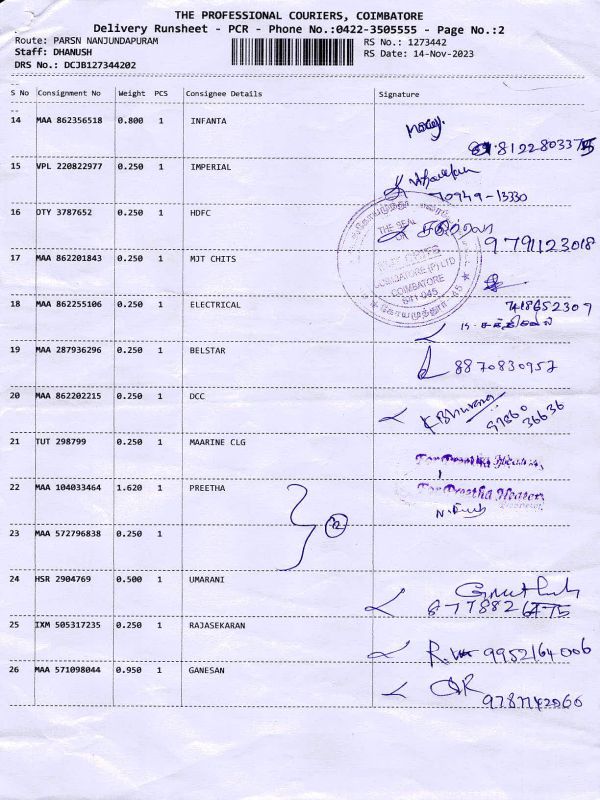 THE PROFESSIONAL COURIERS, COIMBATORE
Delivery Runsheet - PCR - Phone No.:0422-3505555 - Page No.:2
Route: PARSN NANJUNDAPURAM RS No.: 1273442
Staff: DHANUSH RS Date: 14-Nov-2023
DRS No.: DCJB127344202
S No Consignment No Weight PCS Consignee Details Signature
14 MAA 862356518 0.800 1 INFANTA
8122803375
15 VPL 220822977 0.250 1 IMPERIAL
70949-13330
16 DTY 3787652 0.250 1 HDFC
THE SEAL
9791123018
17 MAA 862201843 0.250 1 MJT CHITS
COIMBATORE (P) LTD
COIMBATORE
641 045
18 MAA 862255106 0.250 1 ELECTRICAL 7418652309
19 MAA 287936296 0.250 1 BELSTAR
8870830957
20 MAA 862202215 0.250 1 DCC
K Bhuvana
97860
36636
21 TUT 298799 0.250 1 MAARINE CLG
For Preetha Heaters,
22 MAA 104033464 1.620 1 PREETHA For Preetha Heaters
23 MAA 572796838 0.250 1
2
24 HSR 2904769 0.500 1 UMARANI
25 IXM 505317235 0.250 1 RAJASEKARAN
9952164006
26 MAA 571098044 0.950 1 GANESAN